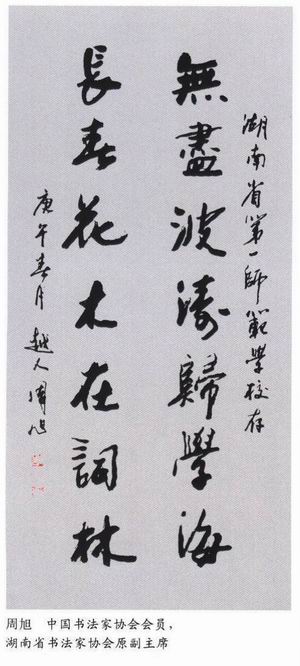 湖南省第一師範學校存
無盡波濤歸學海
長春花木在詞林
庚午春月 越人周旭
周旭 中国书法家协会会员，
湖南省书法家协会原副主席